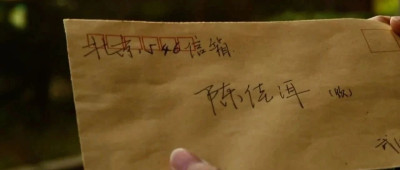 北京546信箱
陈佳洱 (收)